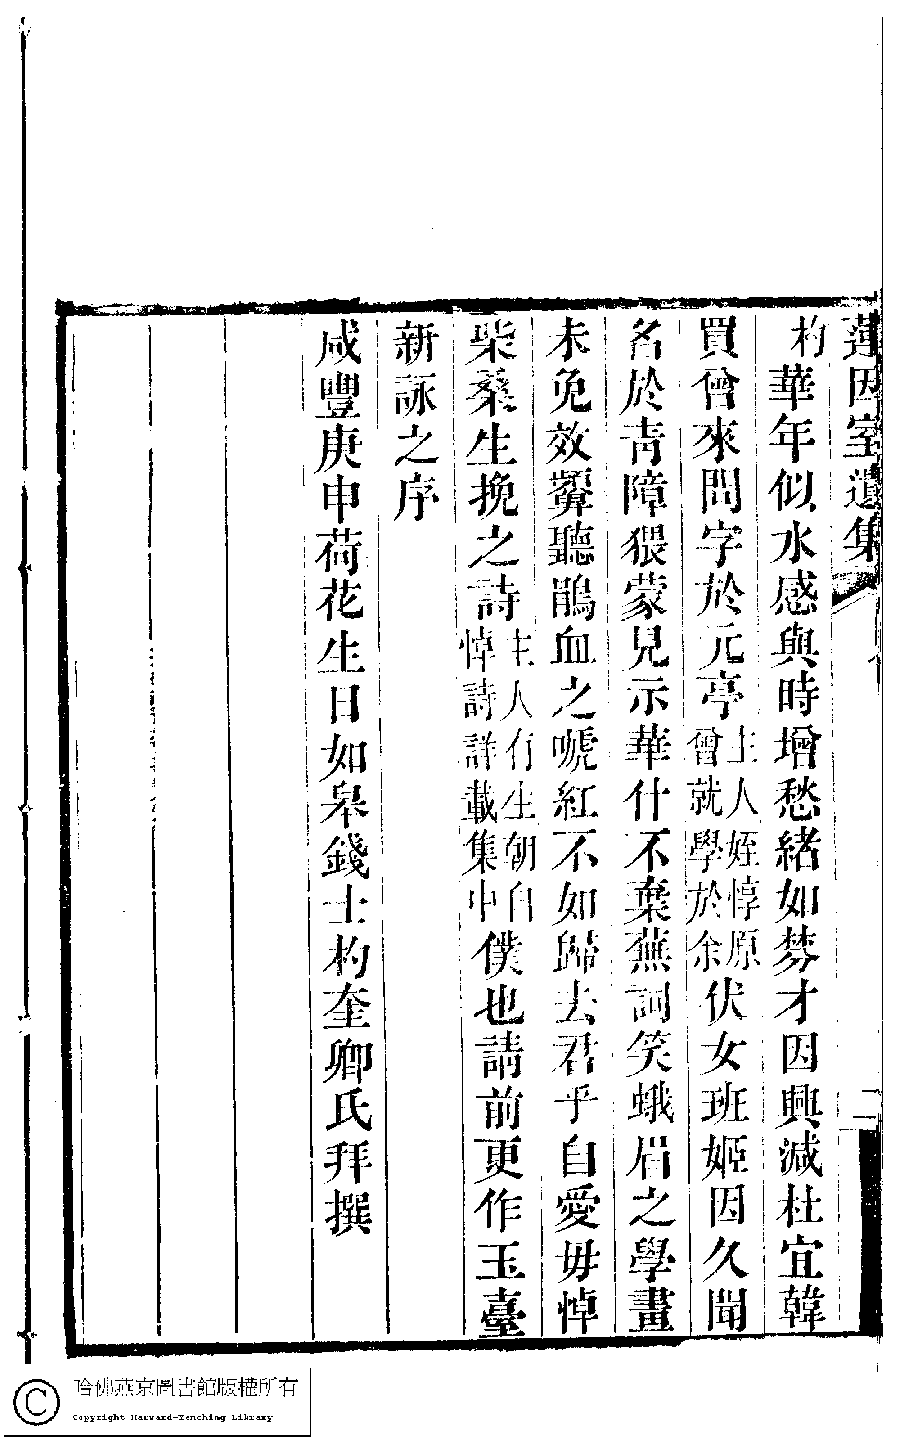 蓮因室遺集
二
杓華年似水感與時增愁緒如棼才因興減杜宜韓
買曾來問字於元亭主人姪惇原曾就學於余伏女班姬因久聞
名於青障猥蒙見示華什不棄蕪詞笑蛾眉之學畫
未免效顰聽鵑血之嗁紅不如歸去君乎自愛毋悼
柴桑生挽之詩主人有生朝自悼詩詳載集中僕也請前更作玉臺
新詠之序
咸豐庚申荷花生日如皋錢士杓奎卿氏拜撰
哈佛燕京圖書館版權所有
Copyright Harvard-Yenching Library